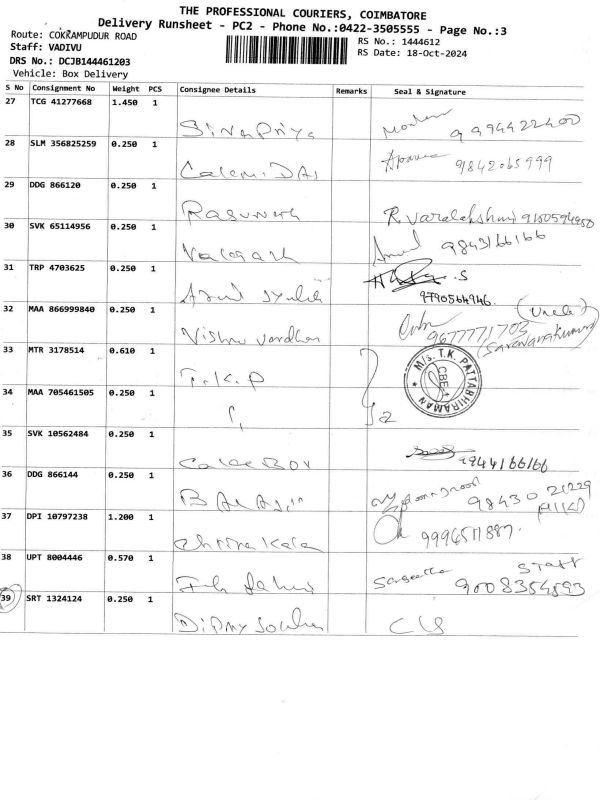 THE PROFESSIONAL COURIERS, COIMBATORE
Delivery Runsheet - PC2 - Phone No.:0422-3505555 - Page No.:3
Route: COKRAMPUDUR ROAD
Staff: VADIVU
DRS No.: DCJB144461203
Vehicle: Box Delivery
RS No.: 1444612
RS Date: 18-Oct-2024
S No Consignment No Weight PCS Consignee Details Remarks Seal & Signature
27 TCG 41277668 1.450 1
Sivapriya 9994422400
28 SLM 356825259 0.250 1
9842065999
29 DDG 866120 0.250 1
R Varalakshmi 9150594950
30 SVK 65114956 0.250 1
9843166166
31 TRP 4703625 0.250 1
9790564946.
32 MAA 866999840 0.250 1
Vishnu Vardhan 9677771703 (Uncle)
(Saravanakumar)
33 MTR 3178514 0.610 1
T.K.P M/s. T.K. PATTABHIRAMAN CBE
34 MAA 705461505 0.250 1
35 SVK 10562484 0.250 1
9944166166
36 DDG 866144 0.250 1
Balaji 98430 21229
37 DPI 10797238 1.200 1
Chitra Kala
38 UPT 8004446 0.570 1
Staff
9008354593
39 SRT 1324124 0.250 1